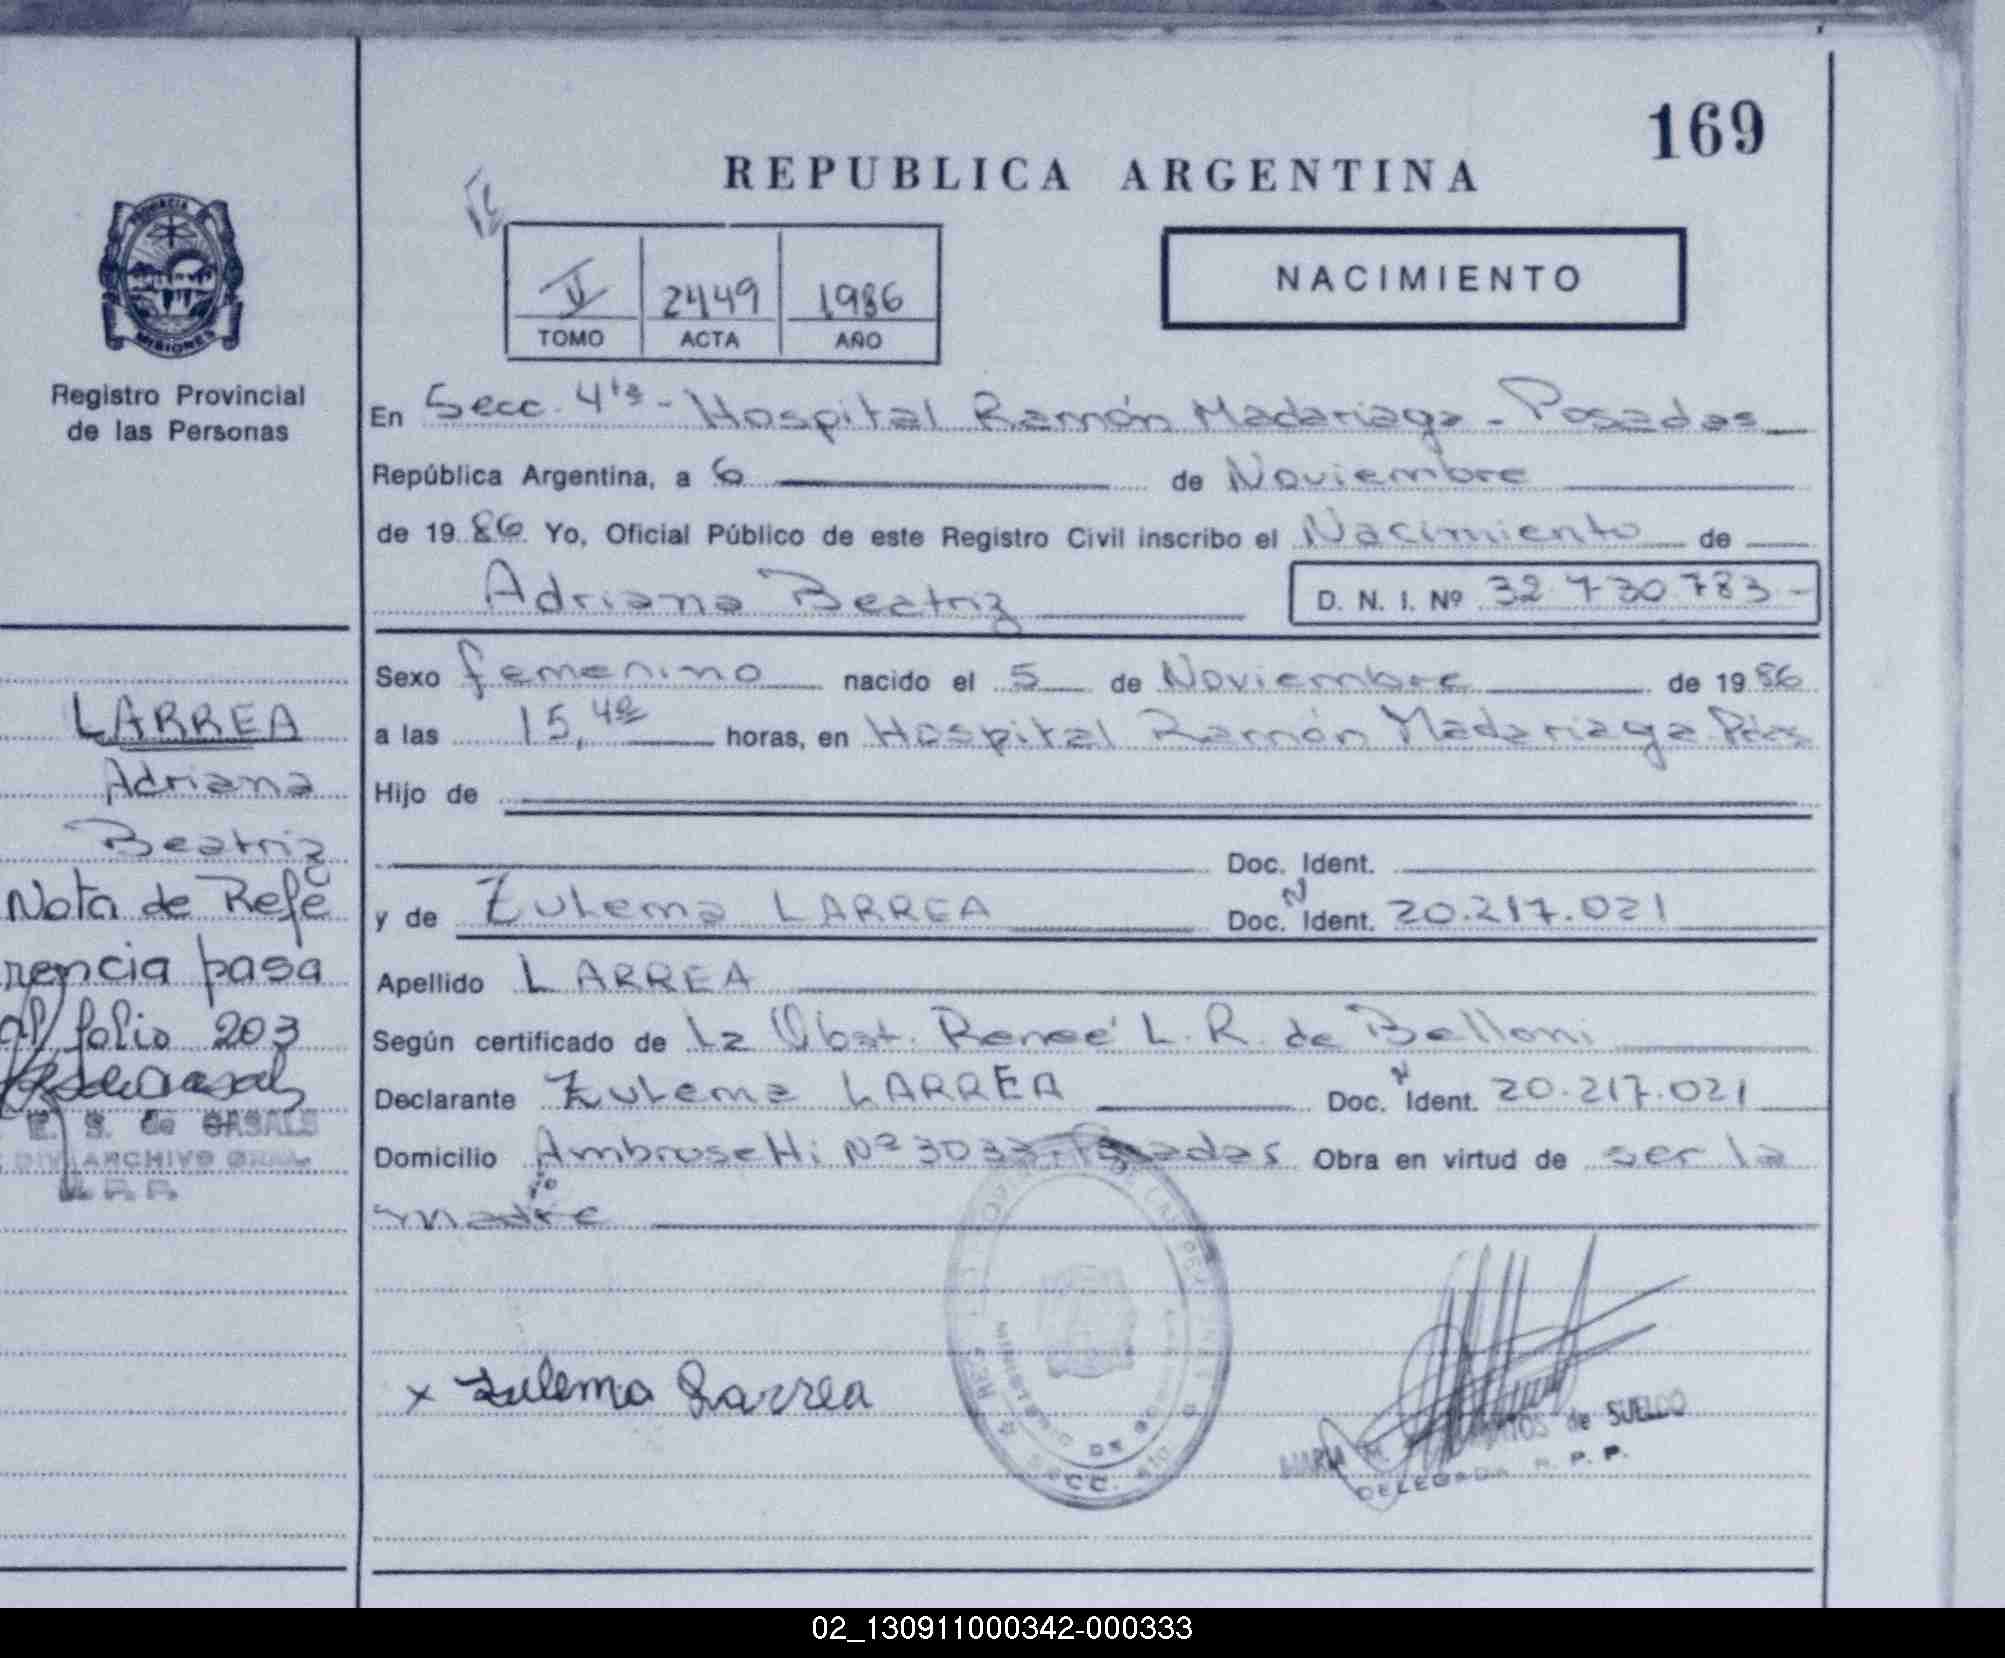 169
REPUBLICA ARGENTINA
PROVINCIA
MISIONES
Registro Provincial
de las Personas
NACIMIENTO
2449 1986
TOMO ACTA AÑO
En Secc. 4ta - Hospital Ramón Madariaga - Posadas
República Argentina, a 6 de Noviembre
de 1986 Yo, Oficial Público de este Registro Civil inscribo el Nacimiento de
Adriana Beatriz D. N. I. Nº 32.730.783-
Sexo femenino nacido el 5 de Noviembre de 1986
a las 15,40 horas, en Hospital Ramón Madariaga Pdas
Hijo de
Doc. Ident.
y de Zulema LARREA Doc. N Ident. 20.217.021
Apellido LARREA
Según certificado de la Obst. Reneé L. R. de Belloni
Declarante Zulema LARREA Doc. N Ident. 20.217.021
Domicilio Ambrosetti Nº 3033 - Posadas Obra en virtud de ser la
madre
LARREA
Adriana
Beatriz
Nota de Refe
rencia pasa
al folio 203
E. S. de CASALS
DIV. ARCHIVO GRAL.
R. P. P.
x Zulema Larrea
SECC. 4ta
MARIA de SUELDO
DELEGADA R. P. P.
02_130911000342-000333